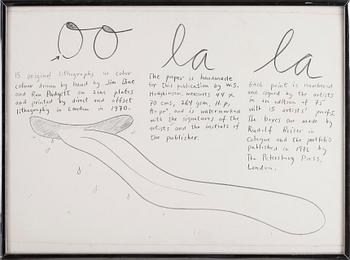 oo la la
15 original lithographs in color
colour drawn by hand by Jim Dine
and Ron Padgett on zinc plates
and printed by direct and offset
lithography in London in 1970.
The paper is handmade
for this publication by W.S.
Hodgkinson, measures 44 x
70 cms, 264 gsm. H.P.
and is watermarked
with the signatures of the
artists and the initials of
the publisher.
Each print is numbered
and signed by the artists
in an edition of 75
with 15 artists' proofs.
The boxes are made by
Rudolf Rieser in
Cologne and the portfolio
published in 1970 by
The Petersburg Press,
London.